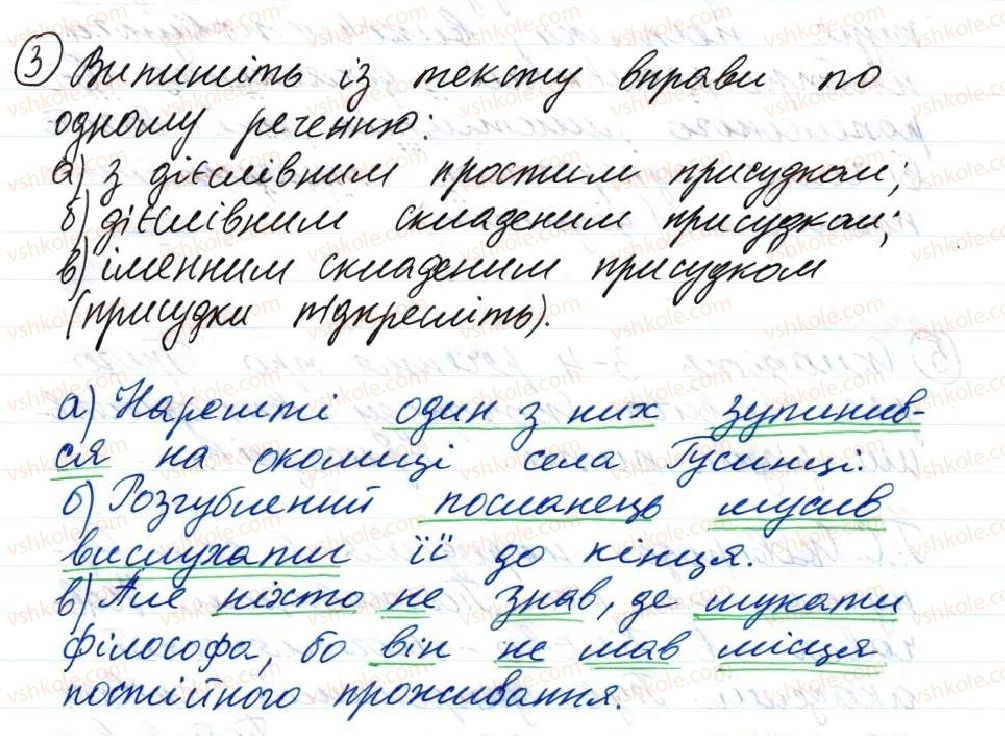 3 Випишіть із тексту вправи по
одному реченню:
а) з дієслівним простим присудком;
б) дієслівним складеним присудком;
в) іменним складеним присудком
(присудки підкресліть).
а) Нарешті один з них зупинив-
ся на околиці села Гусинці.
б) Розгублений посланець мусив
вислухати її до кінця.
в) Але ніхто не знав, де шукати
філософа, бо він не мав місця
постійного проживання.